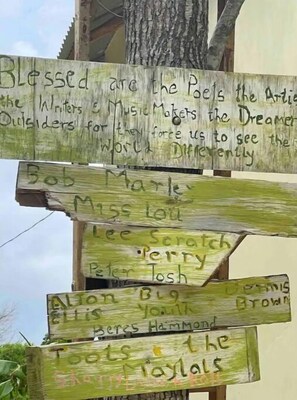 Blessed are the Poets the Artis
the Writers & Music Makers the Dreamer
Outsiders for they force us to see the
World Differently
Bob Marley
Miss Lou
Lee Scratch
Perry
Peter Tosh
Alton Big Dennis
Ellis Youth Brown
Beres Hammond
Toots & the
Maytals